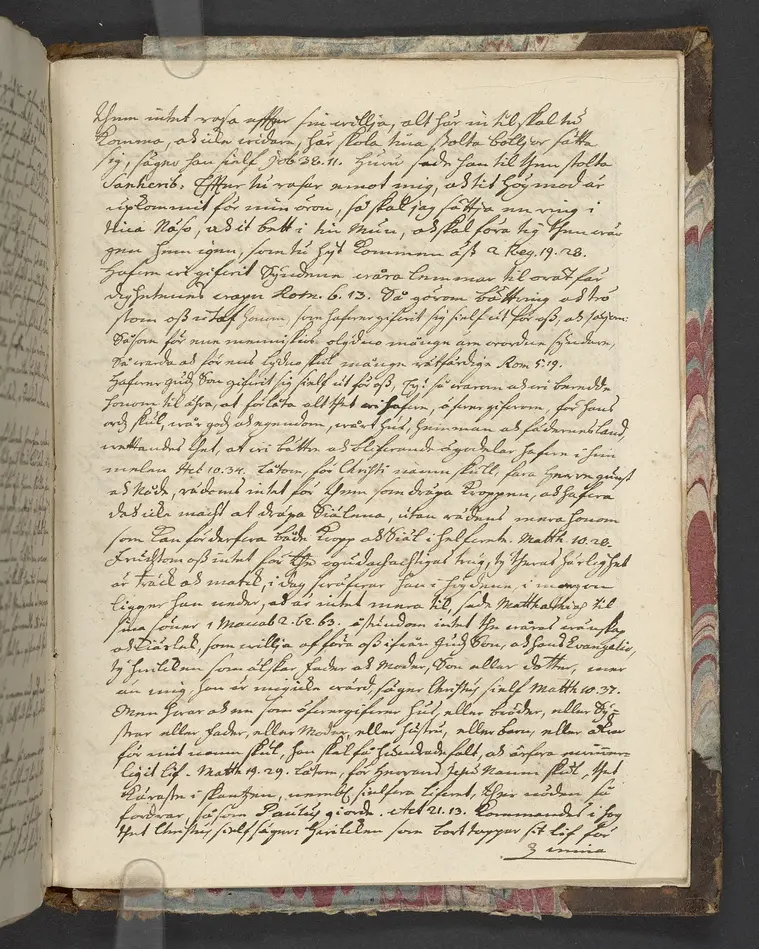 Them intet rasa effter sin willja, alt här in til skal tu
komma, ok icke widare, här skola tina stolta böljer sättia
sig, säger han sielf Job 38. 11. Huru sade han til then stolta
Sanherib. Effter tu rasar emot mig, ok tit högmod är
upkommit för min öron, så skal jag sättja en ring i
tina Näso, ok it bett i tin Mun, ok skal föra tig then wä-
gen hem igen, som tu hijt kommen äst 2 Reg. 19. 28.
Hafwe wi gifwit Syndene wåra lemmar til orätfär
dighetenes wapn Rom. 6. 13. Så görom bättring ok tro
som oss utaf honom, som hafwer gifwit sig sielf ut för oss, ok
Såsom för ene menniskios olydno månge äro wordne syndare,
Så warda ok för ens lydno skul månge rätfärdige Rom 5. 19.
Hafwer Guds Son gifwit sig sielf ut för oss, Ey! så warom ok wi beredde
honom til ähra, at förlåta alt thet wi hafwe, öfwergifwom, för hans
ord skul, wår gods ok egendom, wårt hus, hemman ok fädernesland,
wettandes thet, at wi bättre ok blifwande ägodelar hafwe i him
melen 10. 34. Låtom, för Christi namn skull, fara herre gunst
ok Nåde, rädoms intet för them som dräpa kroppen, ok hafwa
dok icke macht at dräpa Siälena, utan rädens mera honom
som kan förderfwa både kropp ok Siäl i helfwete. Matth. 10. 28.
Fruchtom oss intet för the ogudachachtigas trug, ty theras härlighet
är träck ok matk, i dag swäfwar han i högdene, i morgon
ligger han neder, ok är intet mera til, sade Matthathias til
sina söner 1 Maccab 2. 62. 63. åstundom intet the wåras wänskap
ok kiärlek, som willja afföra oss ifrån Guds Son, ok hans Evangelio,
ty hwilcken som älskar fader ok Moder, Son eller dotter, mer
än mig, han är mig icke wärd, säger Christus sielf Matth 10. 37.
Men hwar ok en som öfwergifwer hus, eller bröder, eller Sy-
strar eller fader, eller Moder, eller hustru, eller barn, eller åkrar
för mit namn skul, han skal få hundradefalt, ok ärfwa ewinner-
ligit lif. Matth 19. 29. Låtom, för herrans Jesu Namn skul, thet
käraste i skantzen, nembl. sielfwa lifwet, ther nöden så
fordrar, såsom Paulus giorde. Act 21. 13. kommandes i hog
thet Christus sielf säger: Hwilcken som borttappar sit lif för
mina